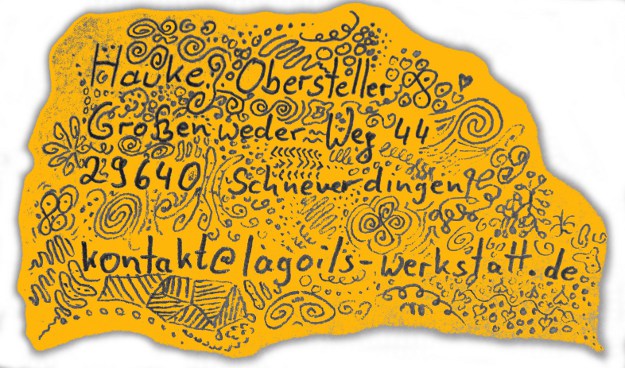 Hauke Obersteller
Großenweder Weg 44
29640 Schneverdingen
kontakt@lagoils-werkstatt.de